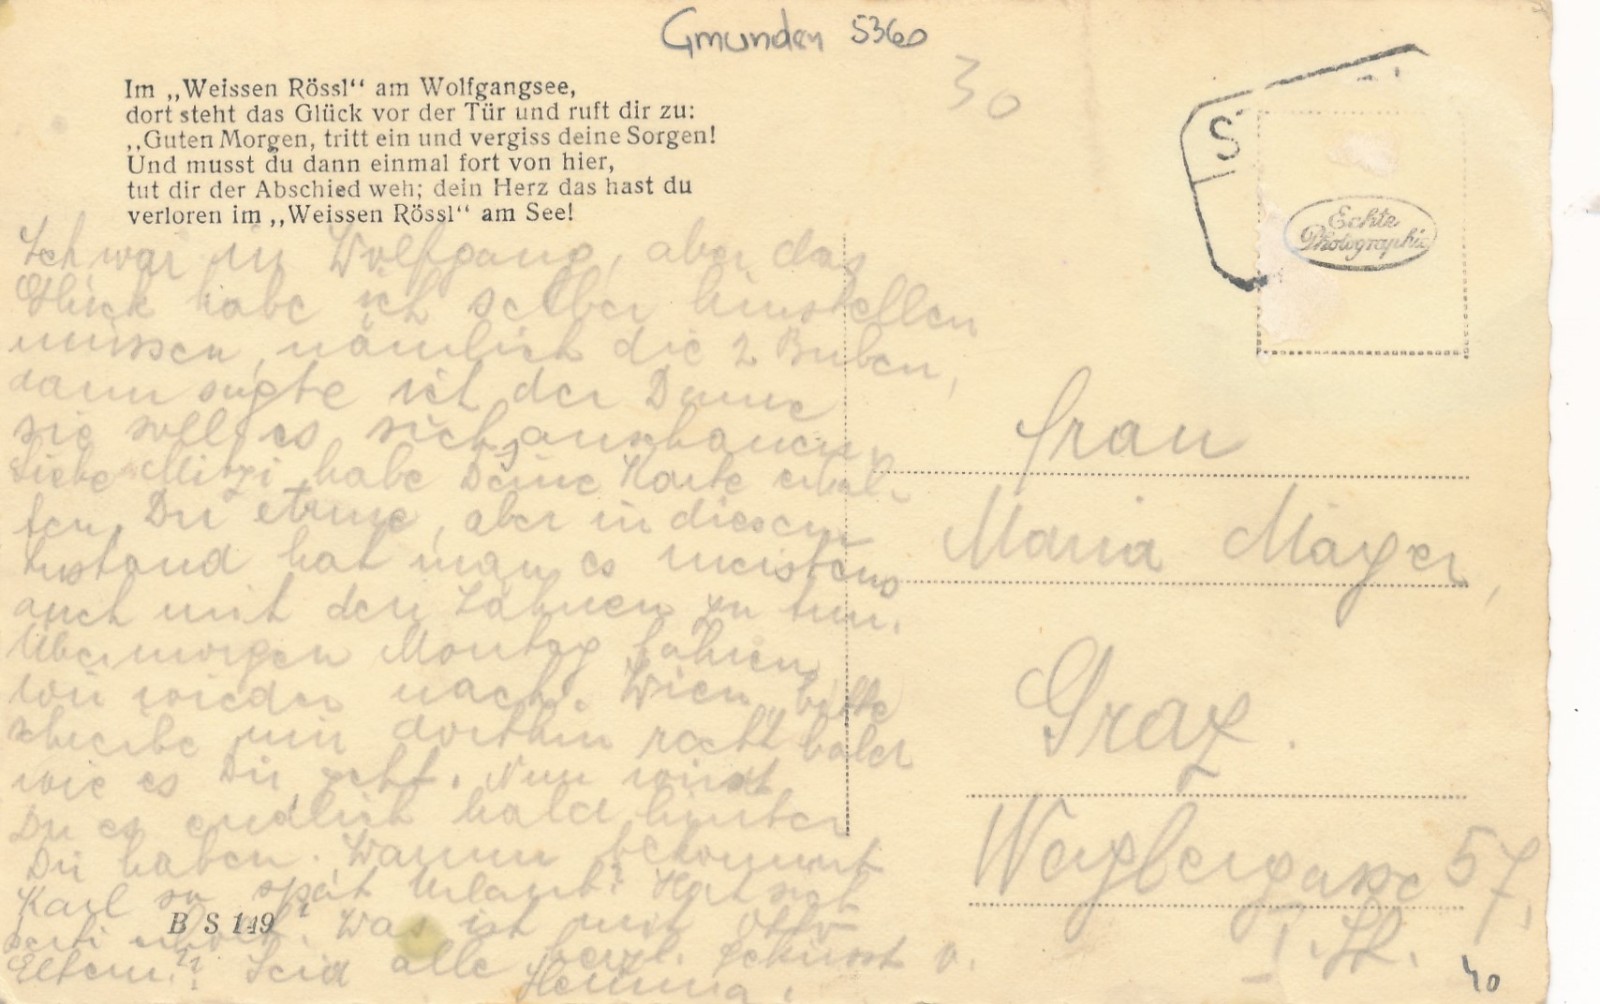 Gmunden 5360
30
Im „Weissen Rössl“ am Wolfgangsee,
dort steht das Glück vor der Tür und ruft dir zu:
„Guten Morgen, tritt ein und vergiss deine Sorgen!
Und musst du dann einmal fort von hier,
tut dir der Abschied weh; dein Herz das hast du
verloren im „Weissen Rössl“ am See!
S
Echte
Photographie
Ich war in Wolfgang, aber das
Glück habe ich selber hinstellen
müssen, nämlich die 2 Buben,
dann sagte ich der Dame
sie soll es sich anschauen.
Liebe Mitzi, habe Deine Karte erhal-
ten, Du, aber in diesem
Zustand hat man es meistens
auch mit den Zähnen zu tun.
Übermorgen Montag fahren
wir wieder nach Wien, bitte
schreibe mir dorthin recht bald
wie es Dir geht. Nun wirst
Du es endlich bald hinter
Dir haben. Warum bekommt
Karl so spät Urlaub? Hat sich
Was ist mit Otto
Eltern?? Seid alle herzl. geküsst v.
Hemma.
B S 149
Frau
Maria Mayer,
Graz.
57,
I. St.
40